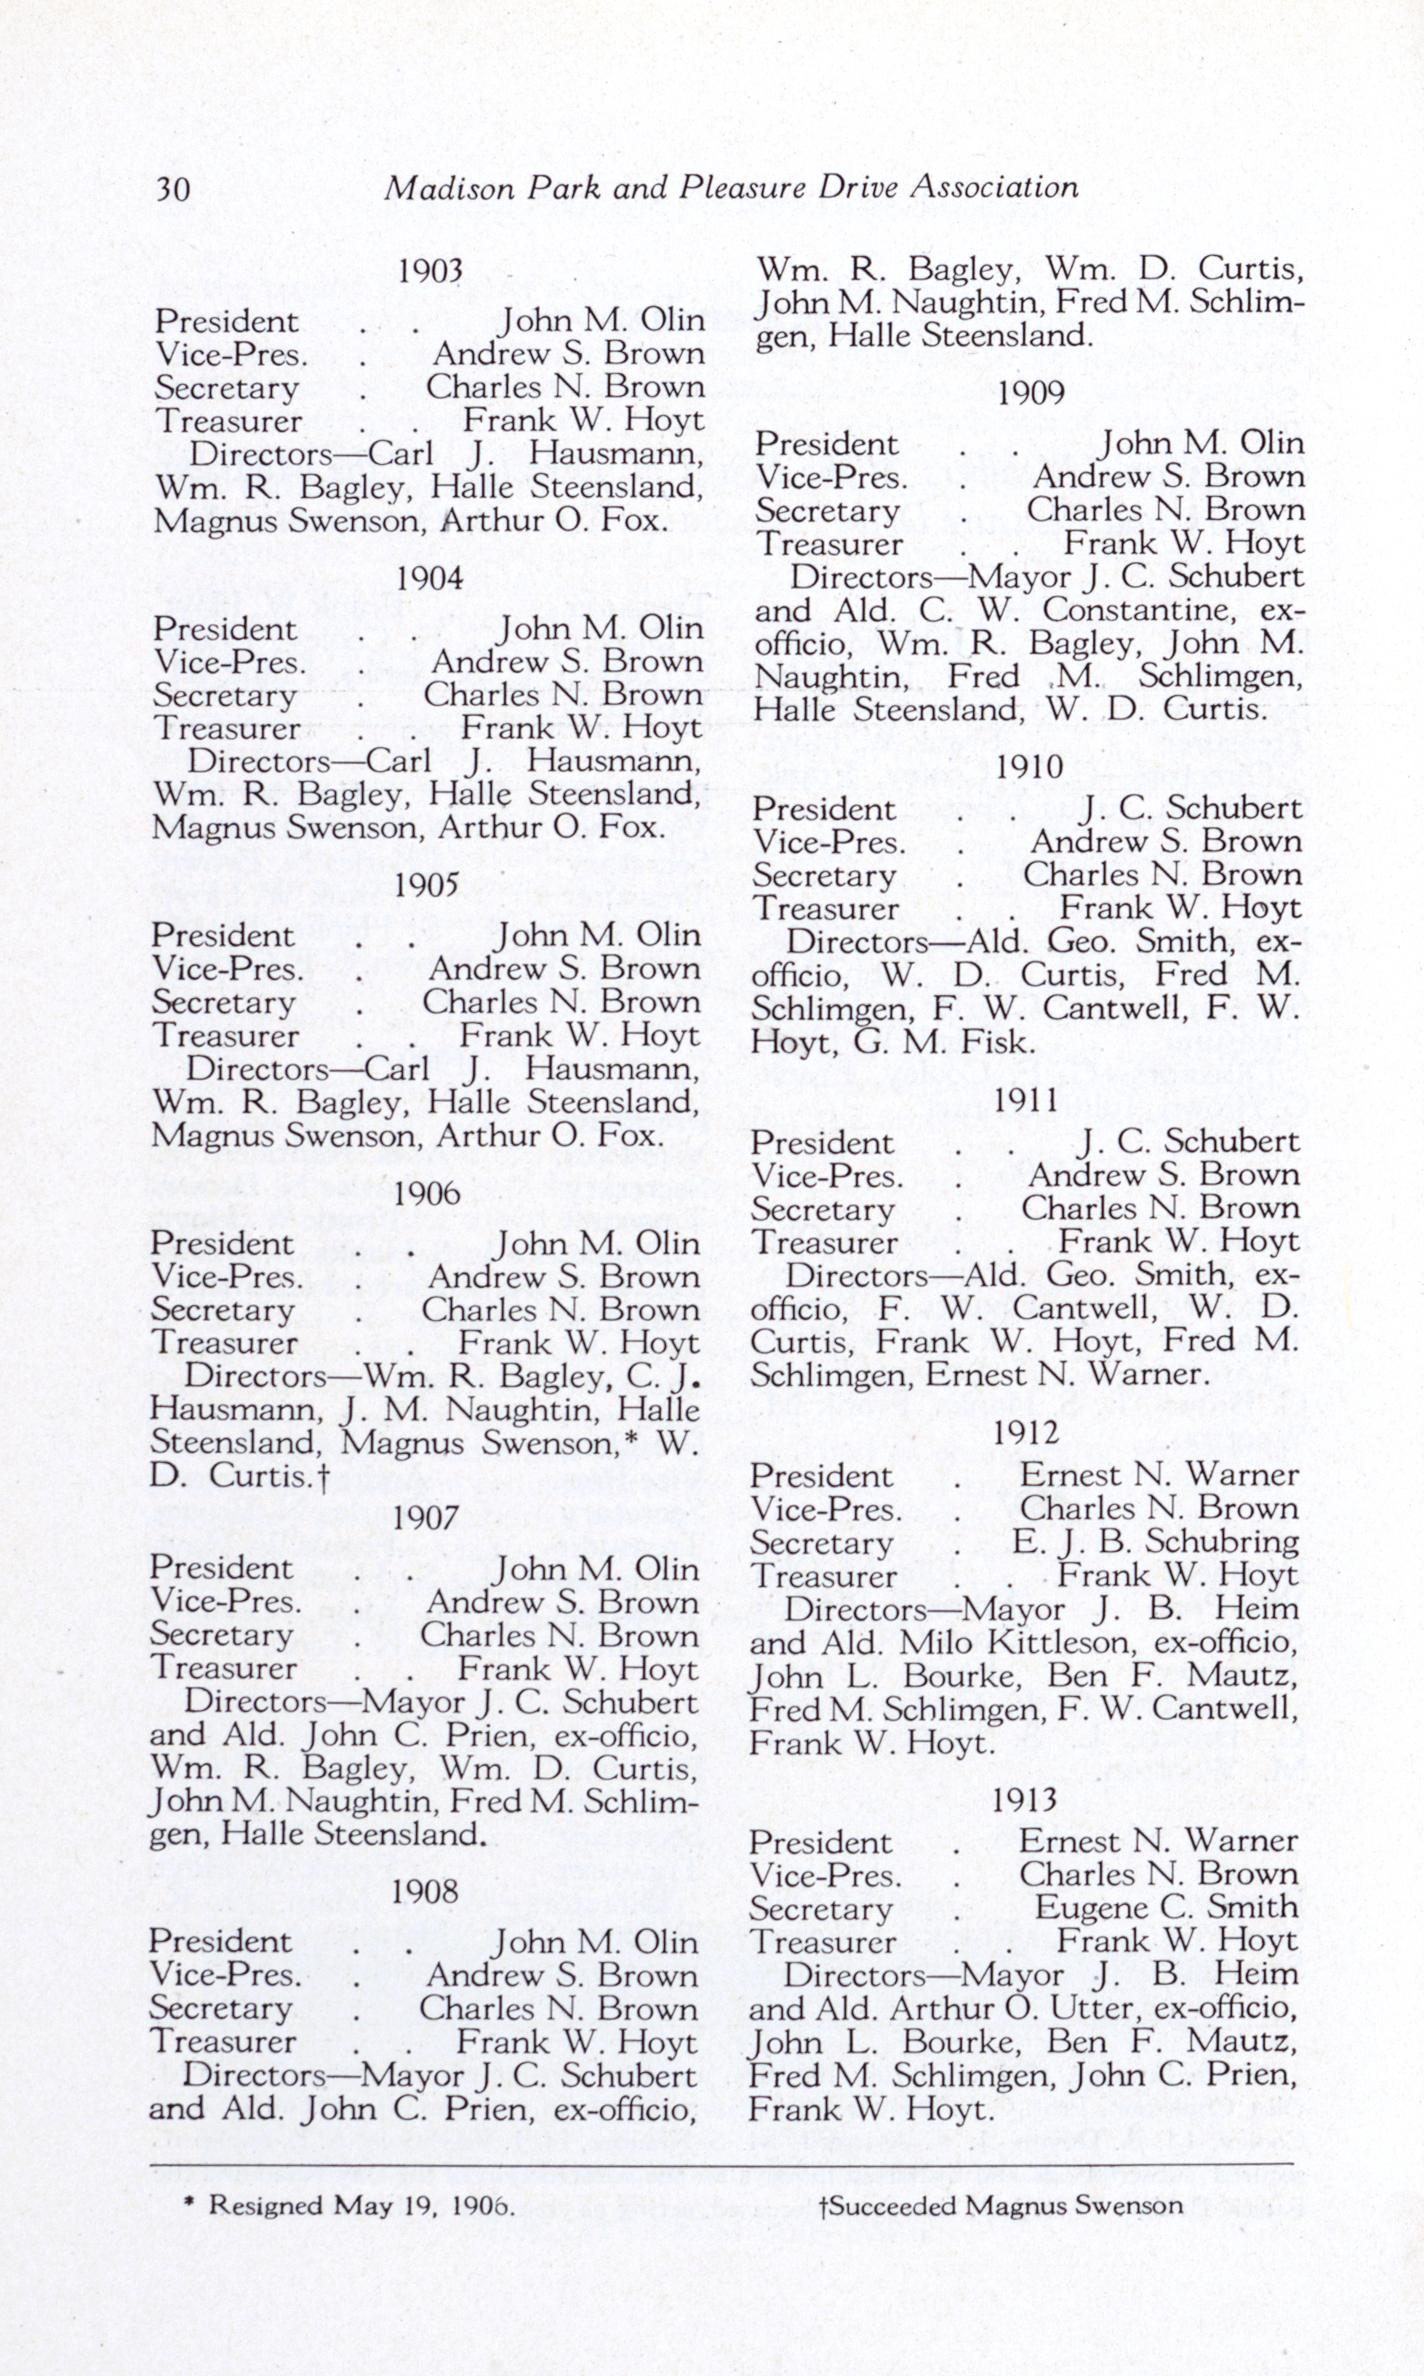 30 Madison Park and Pleasure Drive Association
1903
President . . John M. Olin
Vice-Pres. . Andrew S. Brown
Secretary . Charles N. Brown
Treasurer . . Frank W. Hoyt
Directors—Carl J. Hausmann,
Wm. R. Bagley, Halle Steensland,
Magnus Swenson, Arthur O. Fox.
1904
President . . John M. Olin
Vice-Pres. . Andrew S. Brown
Secretary . Charles N. Brown
Treasurer . . Frank W. Hoyt
Directors—Carl J. Hausmann,
Wm. R. Bagley, Halle Steensland,
Magnus Swenson, Arthur O. Fox.
1905
President . . John M. Olin
Vice-Pres. . Andrew S. Brown
Secretary . Charles N. Brown
Treasurer . . Frank W. Hoyt
Directors—Carl J. Hausmann,
Wm. R. Bagley, Halle Steensland,
Magnus Swenson, Arthur O. Fox.
1906
President . . John M. Olin
Vice-Pres. . Andrew S. Brown
Secretary . Charles N. Brown
Treasurer . . Frank W. Hoyt
Directors—Wm. R. Bagley, C. J.
Hausmann, J. M. Naughtin, Halle
Steensland, Magnus Swenson,* W.
D. Curtis.†
1907
President . . John M. Olin
Vice-Pres. . Andrew S. Brown
Secretary . Charles N. Brown
Treasurer . . Frank W. Hoyt
Directors—Mayor J. C. Schubert
and Ald. John C. Prien, ex-officio,
Wm. R. Bagley, Wm. D. Curtis,
John M. Naughtin, Fred M. Schlim-
gen, Halle Steensland.
1908
President . . John M. Olin
Vice-Pres. . Andrew S. Brown
Secretary . Charles N. Brown
Treasurer . . Frank W. Hoyt
Directors—Mayor J. C. Schubert
and Ald. John C. Prien, ex-officio,
Wm. R. Bagley, Wm. D. Curtis,
John M. Naughtin, Fred M. Schlim-
gen, Halle Steensland.
1909
President . . John M. Olin
Vice-Pres. . Andrew S. Brown
Secretary . Charles N. Brown
Treasurer . . Frank W. Hoyt
Directors—Mayor J. C. Schubert
and Ald. C. W. Constantine, ex-
officio, Wm. R. Bagley, John M.
Naughtin, Fred M. Schlimgen,
Halle Steensland, W. D. Curtis.
1910
President . . J. C. Schubert
Vice-Pres. . Andrew S. Brown
Secretary . Charles N. Brown
Treasurer . . Frank W. Hoyt
Directors—Ald. Geo. Smith, ex-
officio, W. D. Curtis, Fred M.
Schlimgen, F. W. Cantwell, F. W.
Hoyt, G. M. Fisk.
1911
President . . J. C. Schubert
Vice-Pres. . Andrew S. Brown
Secretary . Charles N. Brown
Treasurer . . Frank W. Hoyt
Directors—Ald. Geo. Smith, ex-
officio, F. W. Cantwell, W. D.
Curtis, Frank W. Hoyt, Fred M.
Schlimgen, Ernest N. Warner.
1912
President . Ernest N. Warner
Vice-Pres. . Charles N. Brown
Secretary . E. J. B. Schubring
Treasurer . . Frank W. Hoyt
Directors—Mayor J. B. Heim
and Ald. Milo Kittleson, ex-officio,
John L. Bourke, Ben F. Mautz,
Fred M. Schlimgen, F. W. Cantwell,
Frank W. Hoyt.
1913
President . Ernest N. Warner
Vice-Pres. . Charles N. Brown
Secretary . Eugene C. Smith
Treasurer . . Frank W. Hoyt
Directors—Mayor J. B. Heim
and Ald. Arthur O. Utter, ex-officio,
John L. Bourke, Ben F. Mautz,
Fred M. Schlimgen, John C. Prien,
Frank W. Hoyt.
* Resigned May 19, 1906. †Succeeded Magnus Swenson